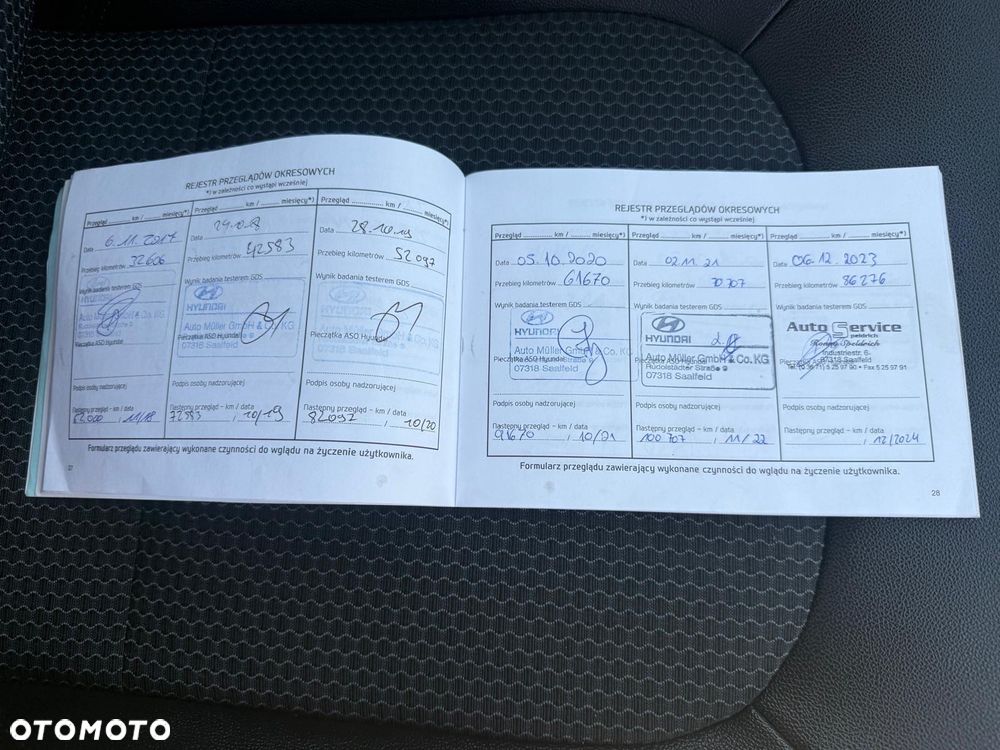 REJESTR PRZEGLĄDÓW OKRESOWYCH
*) w zależności co wystąpi wcześniej
Przegląd ............ km / ...... miesięcy*)
Data 6.11.2017
Przebieg kilometrów 32606
Wynik badania testerem GDS
HYUNDAI
Auto Mü
Pieczątka ASO Hyundai
Podpis osoby nadzorującej
Następny przegląd – km / data
, 11/18
Przegląd ............ km / ...... miesięcy*)
Data
Przebieg kilometrów 42583
Wynik badania testerem GDS
HYUNDAI
Auto Müller GmbH & Co. KG
Pieczątka ASO Hyundai
07318 Saalfeld
Podpis osoby nadzorującej
Następny przegląd – km / data
72583 , 10/19
Przegląd ............ km / ...... miesięcy*)
Data 28.10.19
Przebieg kilometrów 52097
Wynik badania testerem GDS
Auto Müller GmbH & Co. KG
Pieczątka ASO Hyundai
07318 Saalfeld
Podpis osoby nadzorującej
Następny przegląd – km / data
82097 , 10/20
Formularz przeglądu zawierający wykonane czynności do wglądu na życzenie użytkownika.
27
REJESTR PRZEGLĄDÓW OKRESOWYCH
*) w zależności co wystąpi wcześniej
Przegląd ............ km / ...... miesięcy*)
Data 05.10.2020
Przebieg kilometrów 61670
Wynik badania testerem GDS
HYUNDAI
Auto Müller GmbH & Co. KG
Pieczątka ASO Hyundai
07318 Saalfeld
Podpis osoby nadzorującej
Następny przegląd – km / data
91670 , 10/21
Przegląd ............ km / ...... miesięcy*)
Data 02.11.21
Przebieg kilometrów 70707
Wynik badania testerem GDS
HYUNDAI
Auto Müller GmbH & Co. KG
Rudolstädter Straße 9
07318 Saalfeld
Podpis osoby nadzorującej
Następny przegląd – km / data
100 707 , 11/22
Przegląd ............ km / ...... miesięcy*)
Data 06.12.2023
Przebieg kilometrów 86276
Wynik badania testerem GDS
Auto Service
Industriestr. 6
07318 Saalfeld
Tel. (0 36 71) 5 25 97 90 • Fax 5 25 97 91
Podpis osoby nadzorującej
Następny przegląd – km / data
, 12/2024
Formularz przeglądu zawierający wykonane czynności do wglądu na życzenie użytkownika.
28
OTOMOTO